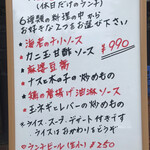 (休日だけのランチ)
6種類の料理の中から
お好きな2つをお選び下さい
・海老のチリソース
・カニ玉甘酢ソース
¥990
・麻婆豆腐
・ナスと木の子の炒めもの
・鶏の唐揚げ油淋ソース
・玉ネギとレバーの炒めもの
・ライス・スープ・デザート付きます
ライスはおかわりもどうぞ
ランチビール(生小) ¥250